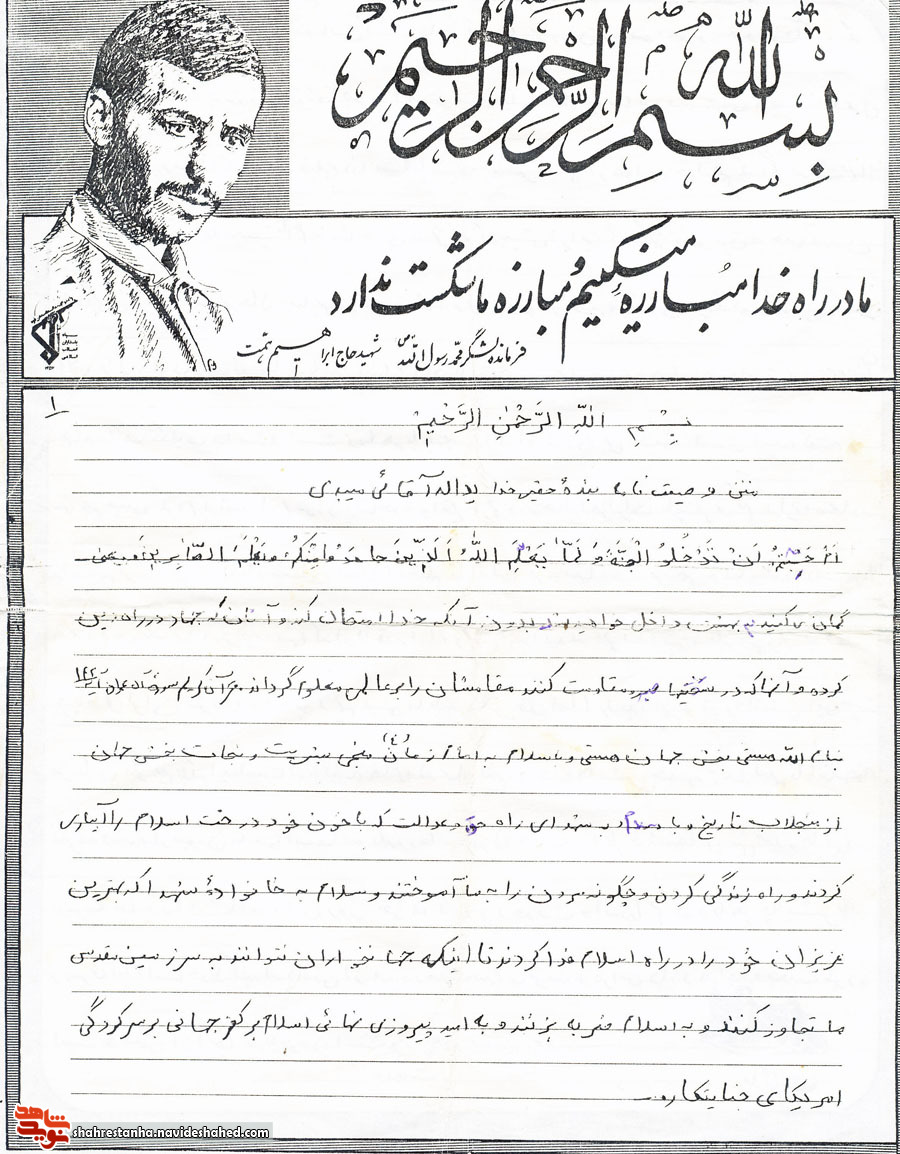 بسم الله الرحمن الرحیم
ما در راه خدا مبارزه میکنیم و مبارزه ما شکست ندارد
فرمانده لشگر محمد رسول الله (ص) شهید حاج ابراهیم همت
۱
بِسْمِ اللهِ الرَّحْمٰنِ الرَّحْیمْ
متن وصیت نامه بندهٔ حقیر خدا یداله آقائی میبدی
اَمْ حَسِبْتُمْ اَنْ تَدْخُلُو الْجَنَّةَ وَ لَمّا یَعْلَمِ اللهُ اَلَّذینَ جاهَدُوا مِنْکُمْ وَ یَعْلَمَ الصّابِرینَ و یعنی
گمان می کنید به بهشت داخل خواهید شد بدون آنکه خدا امتحان کند و آنان که جهاد در راه دین
کرده و آنها که در سختیها صبر و مقاومت کنند مقامشان را بر عالمی معلوم گرداند قرآن کریم سوره آل عمران آیه ۱۴۲
بنام الله هستی بخش جهان هستی و با سلام به امام زمان (ع) منجی بشریت و نجات بخش جهان
از منجلاب تاریخ و با سلام بر شهدای راه حق و عدالت که با خون خود درخت اسلام را آبیاری
کردند و راه زندگی کردن و چگونه مردن را به ما آموختند و سلام به خانوادهٔ شهدا که بهترین
عزیزان خود را در راه اسلام فدا کردند تا اینکه جهانخواران نتوانند به سرزمین مقدس
ما تجاوز کنند و به اسلام ضربه بزنند و به امید پیروزی نهائی اسلام بر کفر جهانی بر سرکردگی
امریکای جنایتکار و
نوید شاهد
shahrestanha.navideshahed.com